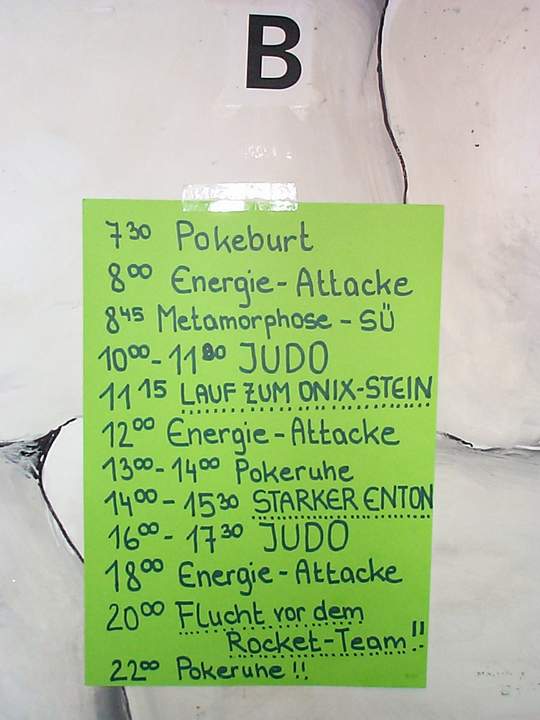 B
7³⁰ Pokeburt
8⁰⁰ Energie-Attacke
8⁴⁵ Metamorphose - SÜ
10⁰⁰-11⁸⁰ JUDO
11¹⁵ LAUF ZUM ONIX-STEIN
12⁰⁰ Energie-Attacke
13⁰⁰-14⁰⁰ Pokeruhe
14⁰⁰-15³⁰ STARKER ENTON
16⁰⁰-17³⁰ JUDO
18⁰⁰ Energie-Attacke
20⁰⁰ Flucht vor dem
Rocket-Team!!
22⁰⁰ Pokeruhe!!